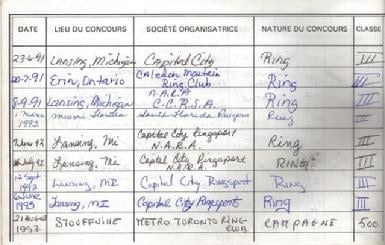 DATE LIEU DU CONCOURS SOCIÉTÉ ORGANISATRICE NATURE DU CONCOURS CLASSE
23-6-91 Lansing, Michigan Capital City Ring III
20-7-91 Erin, Ontario Caledon Mountain Ring Club Ring III
N.A.R.A.
8-9-91 Lansing, Michigan C.C.R.S.A. Ring III
1992 Miami Florida South Florida Ring III
92 Lansing, Mi Capital City Ringsport N.A.R.A. Ring III
92 Lansing, Mi Capital City Ringsport N.A.R.A. RING III
12 Sept 1992 Lansing, MI Capital City Ringsport Ring III
6 June 1993 Lansing, MI Capital City Ringsport Ring III
21 1993 STOUFFVILLE METRO TORONTO RING CLUB CAMPAGNE 500